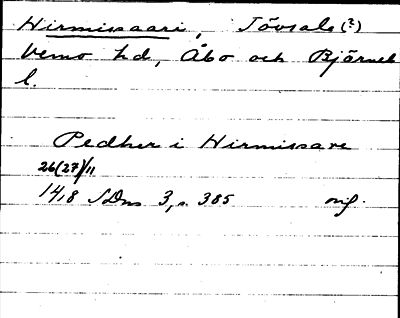 Hirmissaari, Tövsala (?)
Vemo hd, Åbo och Björneb
l.
Pedher i Hirmissare
26(27)/11
1418 SDns 3, s. 385 orig.